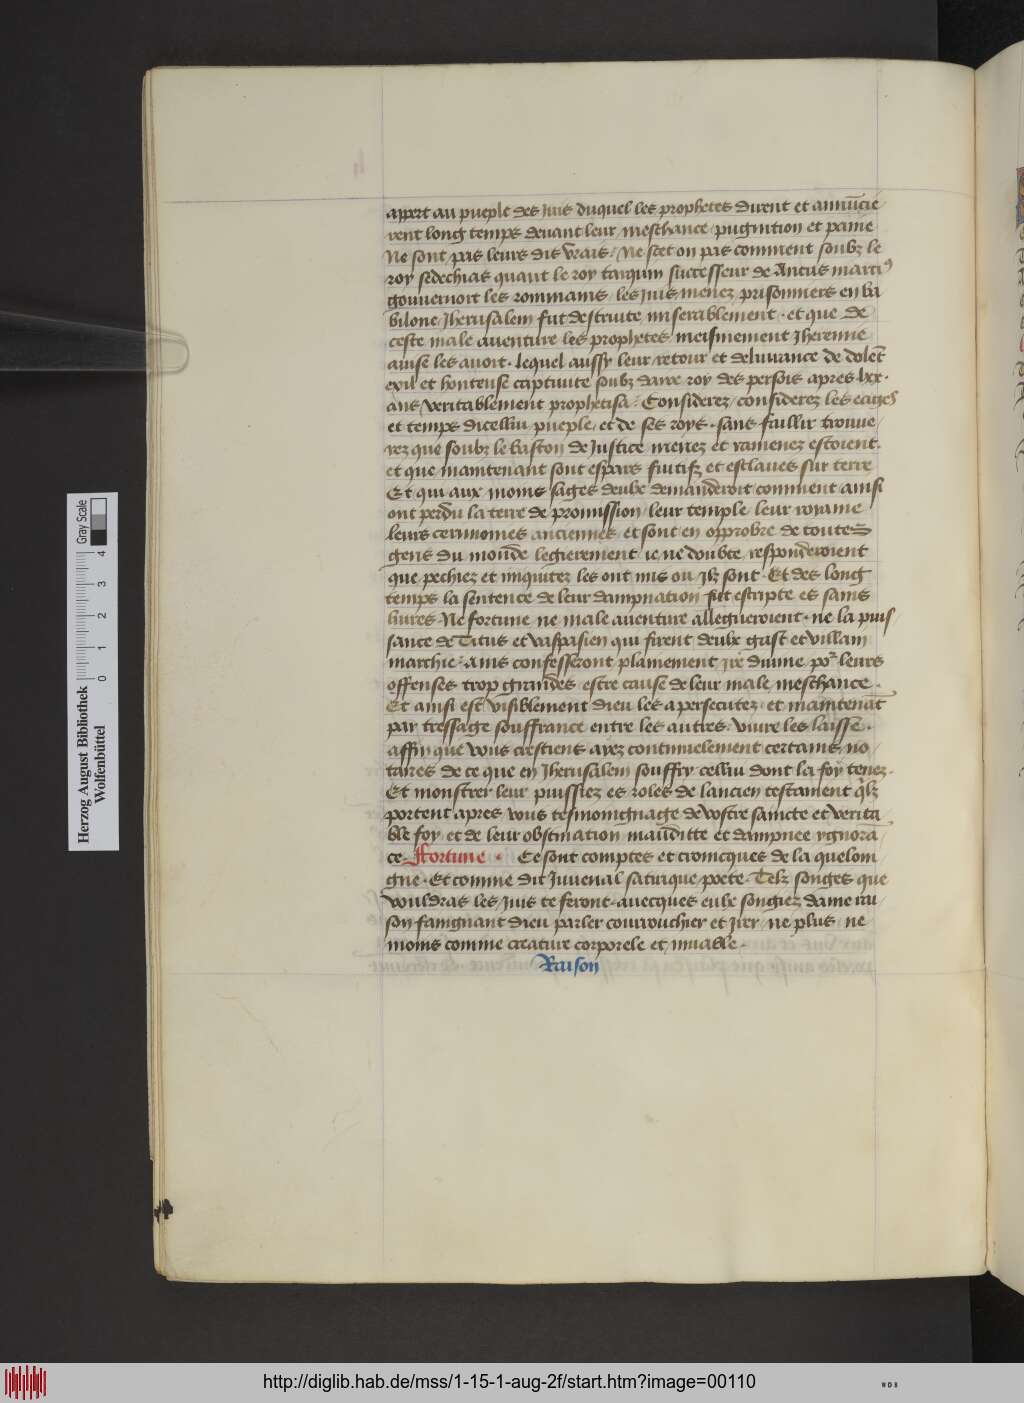 appert au pueple des juis duquel les prophetes dirent et annūcie
rent long temps deuant leur meschance pugnition et paine
Ne sont pas leurs dis vrais / Ne scet on pas comment soubz le
roy sedechias quant le roy tarquin successeur de Ancus marciꝰ
gouuernoit les rommains / les juis menez prisonniers en ba
bilone / Jherusalem fut destruite miserablement · et que de
ceste male auenture les prophetes meismement Jheremie
auise les auoit · lequel aussy leur retour et deliurance de dolēt
exil et honteuse captiuite soubz daire roy des persois apres lxx ·
ans veritablement prophetisa / Considerez / considerez les eages
et temps dicellui pueple / et de ses roys · sans faillir trouue
rez que soubz le baston de Justice menez et ramenez estoient ·
et que maintenant sont espars fuitifz et esclaues sur terre
Et qui aux moins sages deulx demanderoit comment ainsi
ont perdu la terre de promission / leur temple / leur royame
leurs cerimonies anciennes / et sont en opprobre de toutes
gens du monde legierement ie ne doubte responderoient
que pechiez et iniquitez les ont mis ou Jlz sont · Et des long
temps la sentence de leur dampnation fut escripte es sains
liures · Ne fortune ne male auenture allegueroient · ne la puis /
sance de Titus et vaspasien qui firent deulx gast et villain
marchie · Ains confesseront plainement jre diuine por leurs
offenses trop grandes estre cause de leur male meschance ·
Et ainsi est visiblement dieu les a persecutez · et maintenāt
par tressage souffrance entre les autres viure les laisse ·
affin que vous crestiens ayez continuelement certains no /
taires de ce que en Jherusalem souffry cellui dont la foy tenez ·
Et monstrer leur puissiez es roles de lancien testament q̄lz
portent apres vous tesmoingnage de vostre saincte et verita
ble foy / et de leur obstination maūditte et dampnee ygnorā
ce · Ffortune · Ce sont comptes et cronicques de la quelon
gne · Et comme dit Juuenal satirique poete · Telz songes que
vouldras les juis te feront · auecques eulx songiez dame rai /
son faingnant dieu parler courrouchier et jrer / ne plus ne
moins comme creature corporele et muable ·
Raison
Herzog August Bibliothek
Wolfenbüttel
0 1 2 3 4
Gray Scale
http://diglib.hab.de/mss/1-15-1-aug-2f/start.htm?image=00110